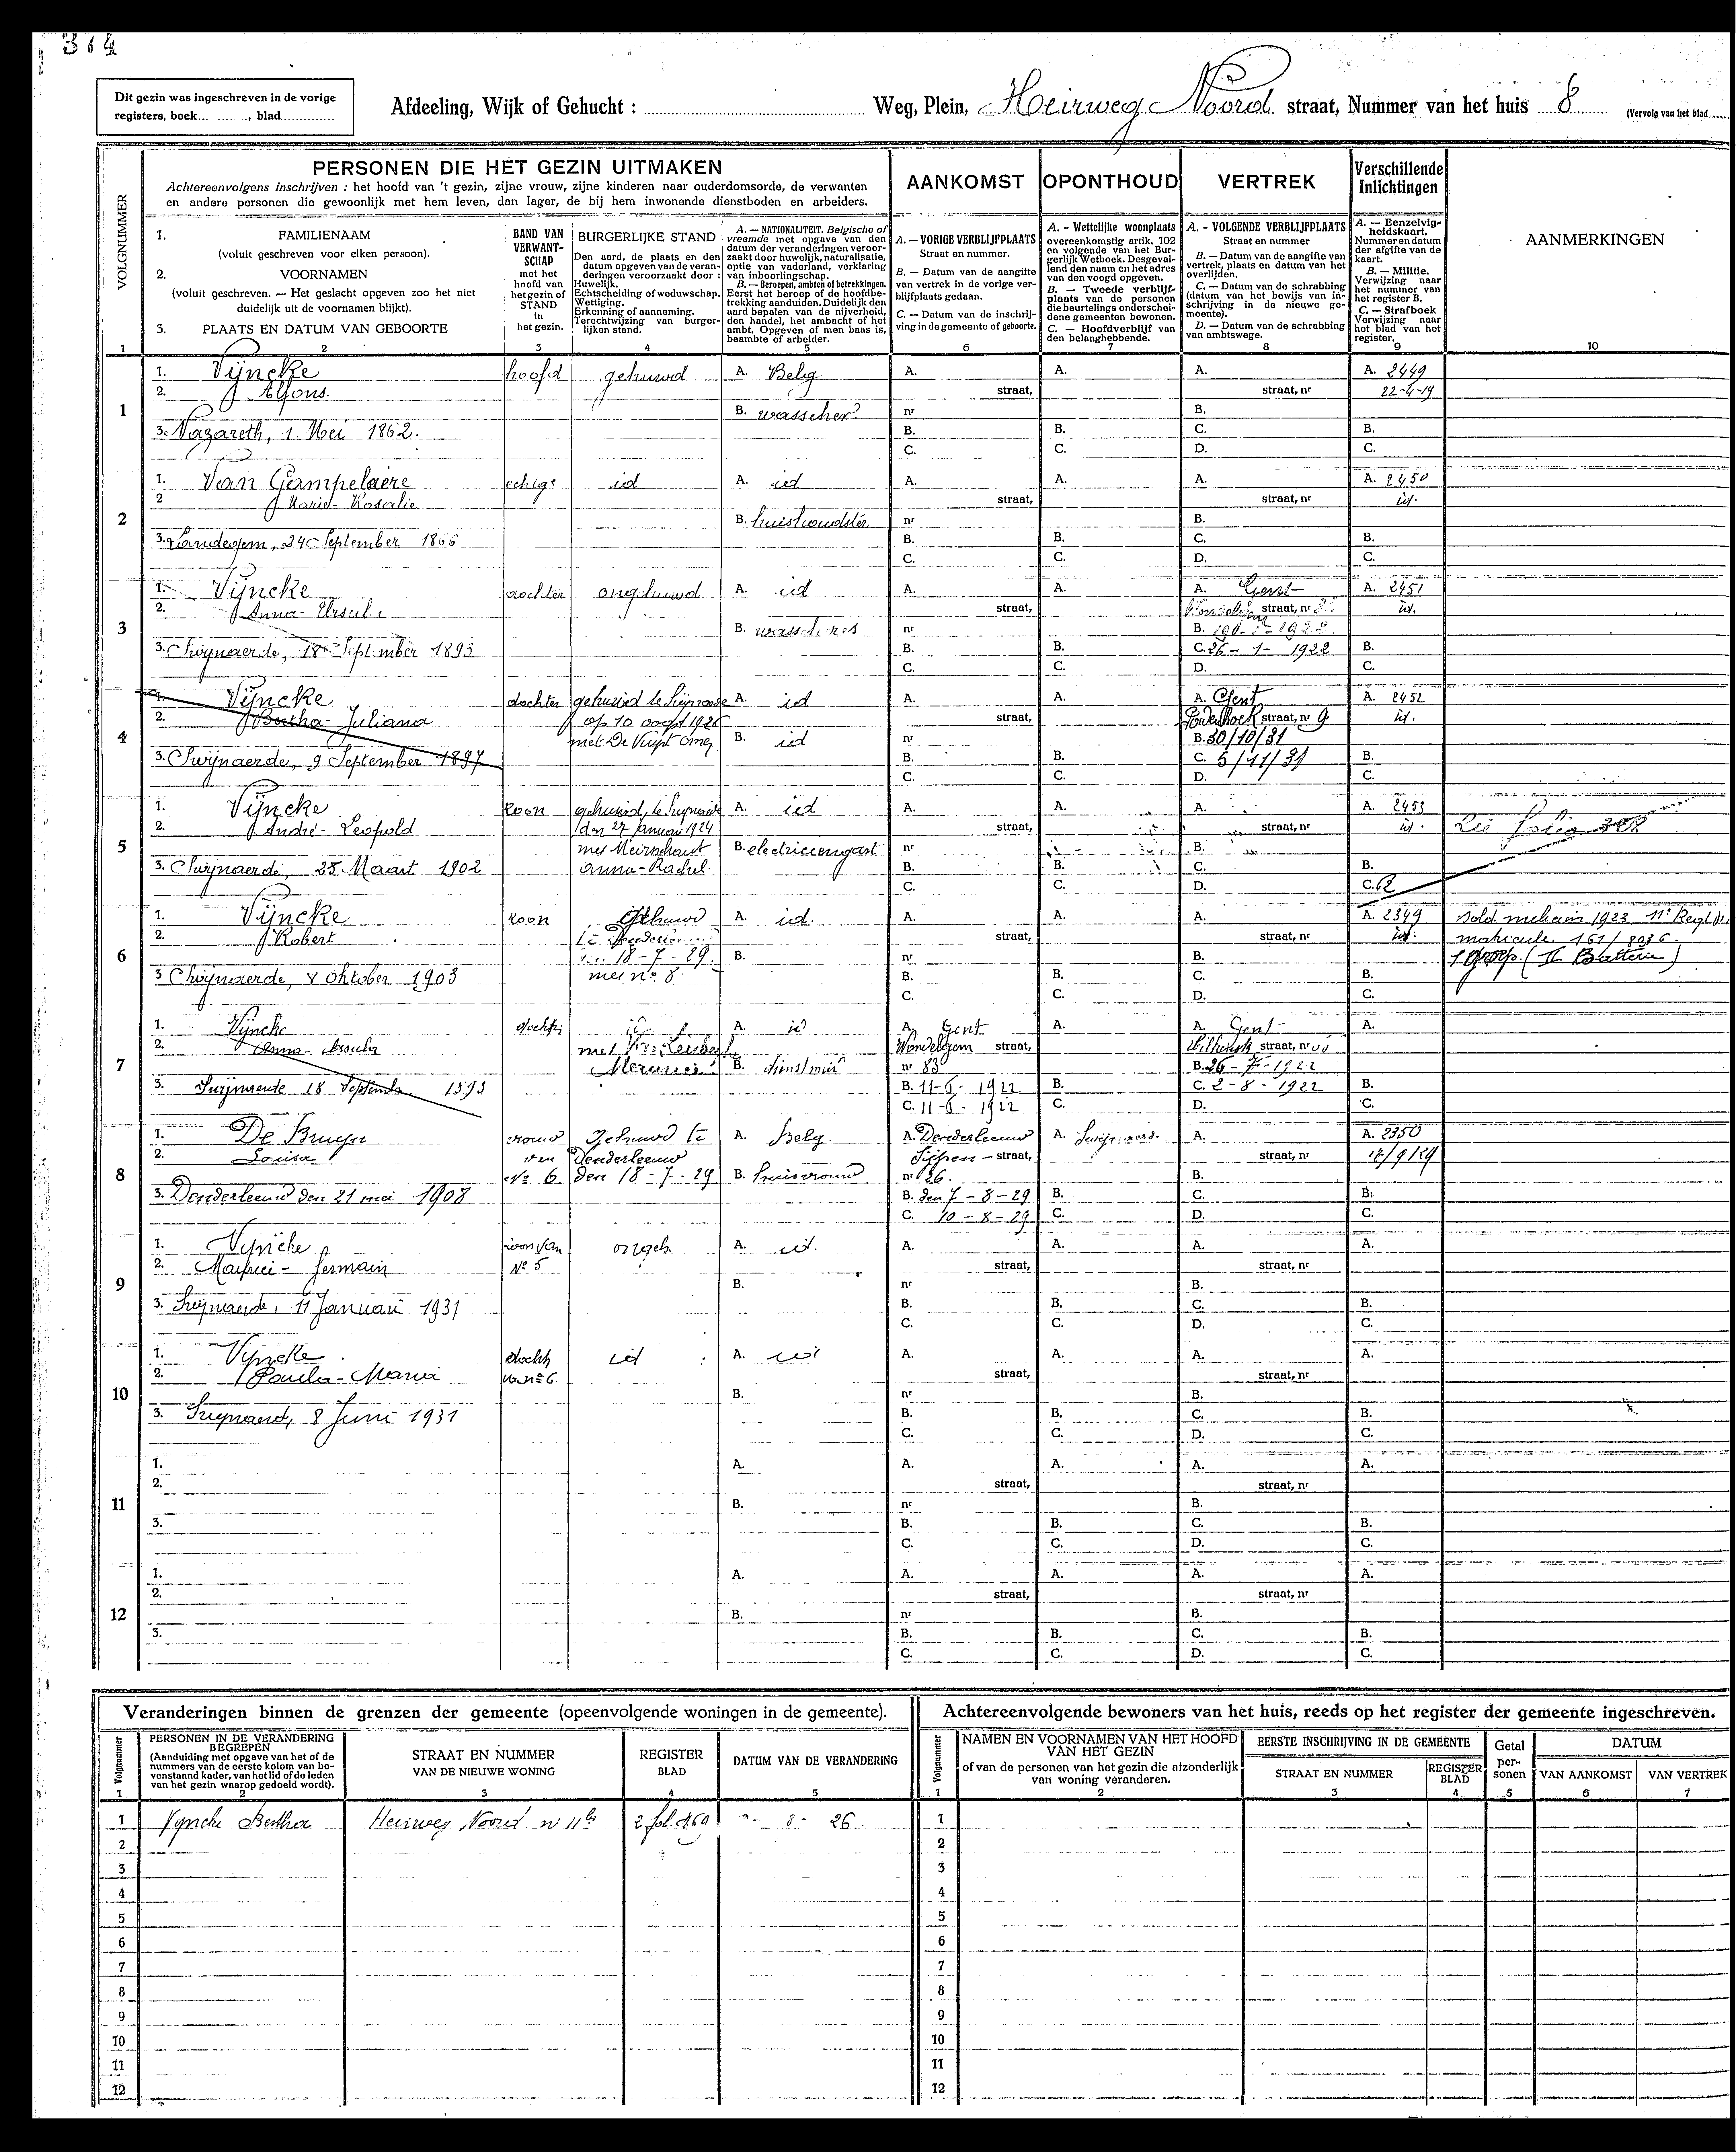 364
Dit gezin was ingeschreven in de vorige
registers, boek............, blad..............
Afdeeling, Wijk of Gehucht :
Weg, Plein, Heirweg Noord straat, Nummer van het huis 8 (Vervolg van het blad
PERSONEN DIE HET GEZIN UITMAKEN
Achtereenvolgens inschrijven : het hoofd van 't gezin, zijne vrouw, zijne kinderen naar ouderdomsorde, de verwanten
en andere personen die gewoonlijk met hem leven, dan lager, de bij hem inwonende dienstboden en arbeiders.
AANKOMST
OPONTHOUD
VERTREK
Verschillende
Inlichtingen
VOLGNUMMER
1. FAMILIENAAM
(voluit geschreven voor elken persoon).
2. VOORNAMEN
(voluit geschreven. — Het geslacht opgeven zoo het niet
duidelijk uit de voornamen blijkt).
3. PLAATS EN DATUM VAN GEBOORTE
BAND VAN
VERWANT-
SCHAP
met het
hoofd van
het gezin of
STAND
in
het gezin.
BURGERLIJKE STAND
Den aard, de plaats en den
datum opgeven van de veran-
deringen veroorzaakt door :
Huwelijk.
Echtscheiding of weduwschap.
Wettiging.
Erkenning of aanneming.
Terechtwijzing van burger-
lijken stand.
A. — NATIONALITEIT. Belgische of
vreemde met opgave van den
datum der veranderingen veroor-
zaakt door huwelijk, naturalisatie,
optie van vaderland, verklaring
van inboorlingschap.
B. — Beroepen, ambten of betrekkingen.
Eerst het beroep of de hoofdbe-
trekking aanduiden. Duidelijk den
aard bepalen van de nijverheid,
den handel, het ambacht of het
ambt. Opgeven of men baas is,
beambte of arbeider.
A. — VORIGE VERBLIJFPLAATS
Straat en nummer.
B. — Datum van de aangifte
van vertrek in de vorige ver-
blijfplaats gedaan.
C. — Datum van de inschrij-
ving in de gemeente of geboorte.
A. - Wettelijke woonplaats
overeenkomstig artik. 102
en volgende van het Bur-
gerlijk Wetboek. Desgeval-
lend den naam en het adres
van den voogd opgeven.
B. — Tweede verblijf-
plaats van de personen
die beurtelings onderschei-
dene gemeenten bewonen.
C. — Hoofdverblijf van
den belanghebbende.
A. - VOLGENDE VERBLIJFPLAATS
Straat en nummer
B. — Datum van de aangifte van
vertrek, plaats en datum van het
overlijden.
C. — Datum van de schrabbing
(datum van het bewijs van in-
schrijving in de nieuwe ge-
meente).
D. — Datum van de schrabbing
van ambtswege.
A. — Eenzelvig-
heidskaart.
Nummer en datum
der afgifte van de
kaart.
B. — Militie.
Verwijzing naar
het nummer van
het register B.
C. — Strafboek
Verwijzing naar
het blad van het
register.
AANMERKINGEN
1 2 3 4 5 6 7 8 9 10
1. Vijncke hoofd gehuwd A. Belg A. A. A. A. 2449
2. Alfons. straat, straat, nr 22-4-19
1 B. wasscher nr B.
3. Nazareth, 1. Mei 1862. B. B. C. B.
C. C. D. C.
1. Van Gampelaere echtge id A. id A. A. A. A. 2450
2 Marie-Rosalie straat, straat, nr id.
2 B. huishoudster nr B.
3. Landegem, 24 September 1866 B. B. C. B.
C. C. D. C.
1. Vijncke dochter ongehuwd A. id A. A. A. Gent A. 2451
2. Anna-Ursula straat, straat, nr id.
3 B. wasscheres nr B.
3. Swijnaerde, 18 September 1893 B. B. C. 26-1-1922 B.
C. C. D. C.
1. Vijncke dochter gehuwd te A. id A. A. A. Gent A. 2452
2. Bertha-Juliana op 10 oogst 1926 straat, straat, nr 9 id.
4 met De Vuyst B. id nr B. 30/10/31
3. Swijnaerde, 9 September 1897 B. B. C. 5/11/31 B.
C. C. D. C.
1. Vijncke zoon gehuwd te A. id A. A. A. A. 2453
2. André-Leopold den 27 Januari 1924 straat, straat, nr id. Zie folio 308
5 met Meirschaut B. electricien gast nr B.
3. Swijnaerde, 25 Maart 1902 anna-Rachel. B. B. C. B.
C. C. D. C. 62
1. Vijncke zoon Gehuwd A. id. A. A. A. A. 2349 sold milicien 1923 11e Regt
2. Robert te straat, straat, nr id. matricule. 161/8036.
6 18-7-29 B. nr B. 1 groep. (II Batterie)
3 Swijnaerde, 4 Oktober 1903 met no 8 B. B. C. B.
C. C. D. C.
1. Vijncke A. id A. Gent A. A. Gent A.
2. Anna-Ursula met Wondelgem straat, straat, nr
7 B. nr 83 B. 26-7-1922
3. Swijnaerde 18 September 1893 B. 11-6-1922 B. C. 2-8-1922 B.
C. 11-6-1922 C. D. C.
1. De Bruyn vrouw Gehuwd te A. Belg. A. Denderleeuw A. Swijnaerd. A. A. 2350
2. Louisa van Denderleeuw straat, straat, nr 17/9/29
8 No 6 den 18-7-29 B. huisvrouw nr 26. B.
3. Denderleeuw den 21 mei 1908 B. den 7-8-29 B. C. B.
C. 10-8-29 C. D. C.
1. Vyncke zoon van ongeh. A. id. A. A. A. A.
2. Maurice-Germain No 5 straat, straat, nr
9 B. nr B.
3. Swijnaerde, 11 Januari 1931 B. B. C. B.
C. C. D. C.
1. Vyncke docht id A. id A. A. A. A.
2. Paula-Maria van no 6. straat, straat, nr
10 B. nr B.
3. Swynaerd, 8 Juni 1931 B. B. C. B.
C. C. D. C.
1. A. A. A. A. A.
2. straat, straat, nr
11 B. nr B.
3. B. B. C. B.
C. C. D. C.
1. A. A. A. A. A.
2. straat, straat, nr
12 B. nr B.
3. B. B. C. B.
C. C. D. C.
Veranderingen binnen de grenzen der gemeente (opeenvolgende woningen in de gemeente).
Volgnummer
PERSONEN IN DE VERANDERING
BEGREPEN
(Aanduiding met opgave van het of de
nummers van de eerste kolom van bo-
venstaand kader, van het lid of de leden
van het gezin waarop gedoeld wordt).
STRAAT EN NUMMER
VAN DE NIEUWE WONING
REGISTER
BLAD
DATUM VAN DE VERANDERING
1 2 3 4 5
1 Vyncke Bertha Heirweg Noord no 11bis 2 fol. 8 - 26
2
3
4
5
6
7
8
9
10
11
12
Achtereenvolgende bewoners van het huis, reeds op het register der gemeente ingeschreven.
Volgnummer
NAMEN EN VOORNAMEN VAN HET HOOFD
VAN HET GEZIN
of van de personen van het gezin die afzonderlijk
van woning veranderen.
EERSTE INSCHRIJVING IN DE GEMEENTE
STRAAT EN NUMMER
REGISTER
BLAD
Getal
per-
sonen
DATUM
VAN AANKOMST
VAN VERTREK
1 2 3 4 5 6 7
1
2
3
4
5
6
7
8
9
10
11
12